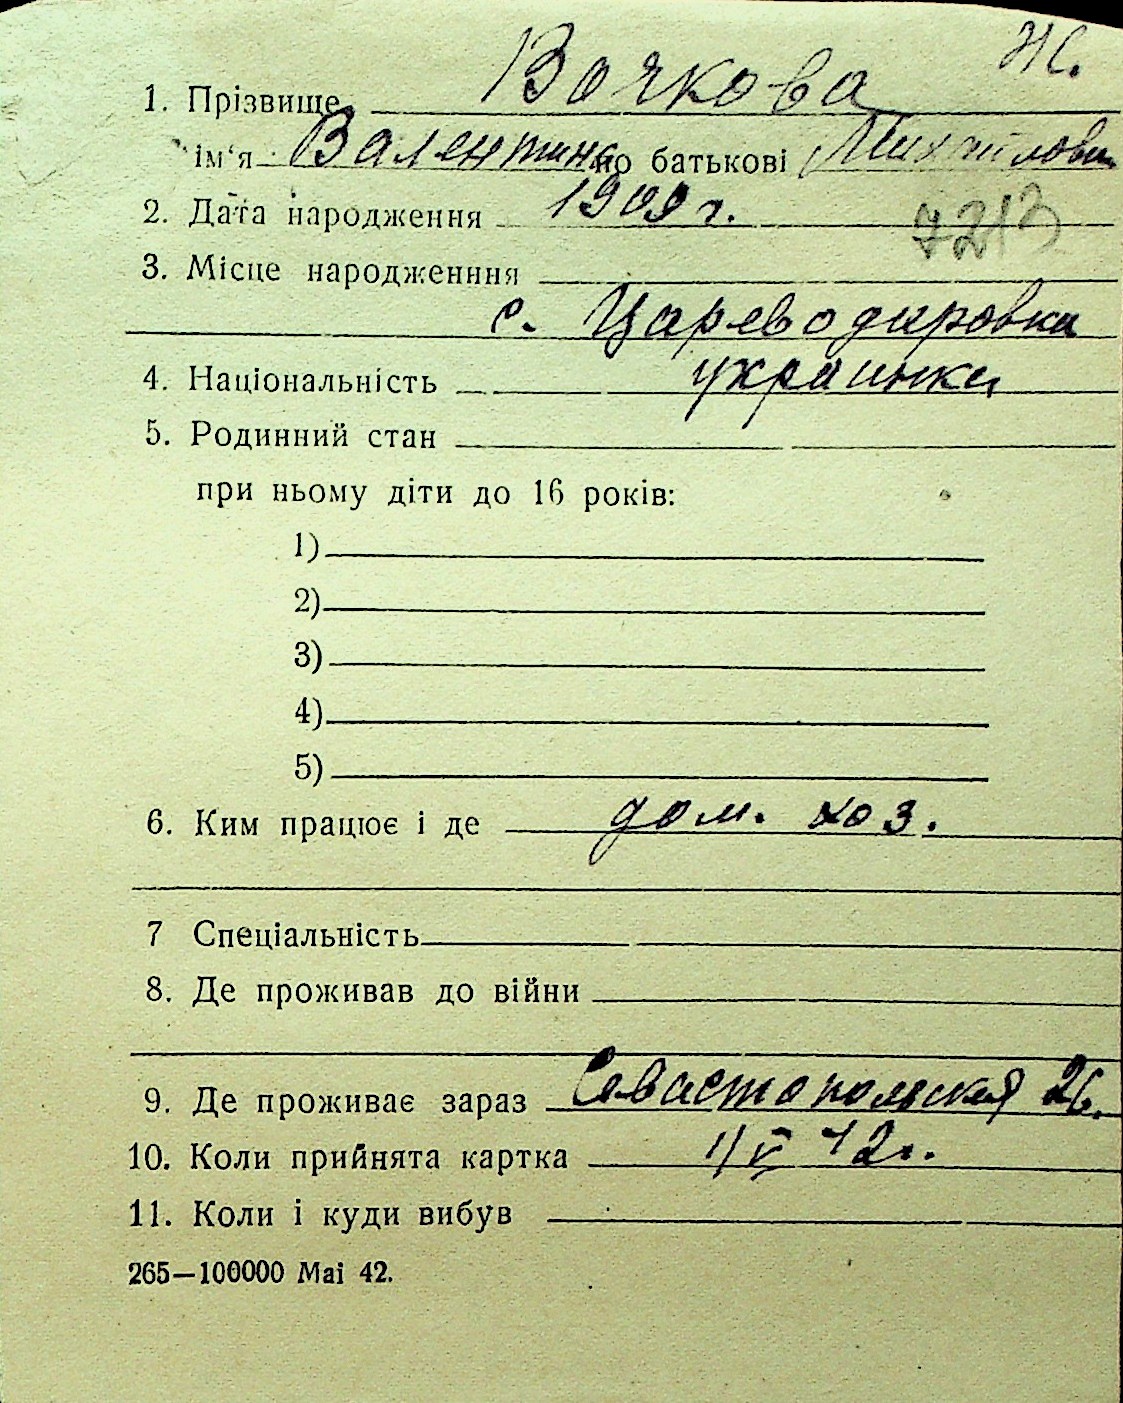 Ж.
1. Прізвище Вочкова
ім'я Валентина по батькові Михайловн
2. Дата народження 1909 г.
7213
3. Місце народженння
с. Цареводаровка
4. Національність украинка
5. Родинний стан
при ньому діти до 16 років:
1)
2)
3)
4)
5)
6. Ким працює і де дом. хоз.
7 Спеціальність
8. Де проживав до війни
9. Де проживає зараз Севастопольская 26.
10. Коли прийнята картка 1/V 42 г.
11. Коли і куди вибув
265—100000 Mai 42.